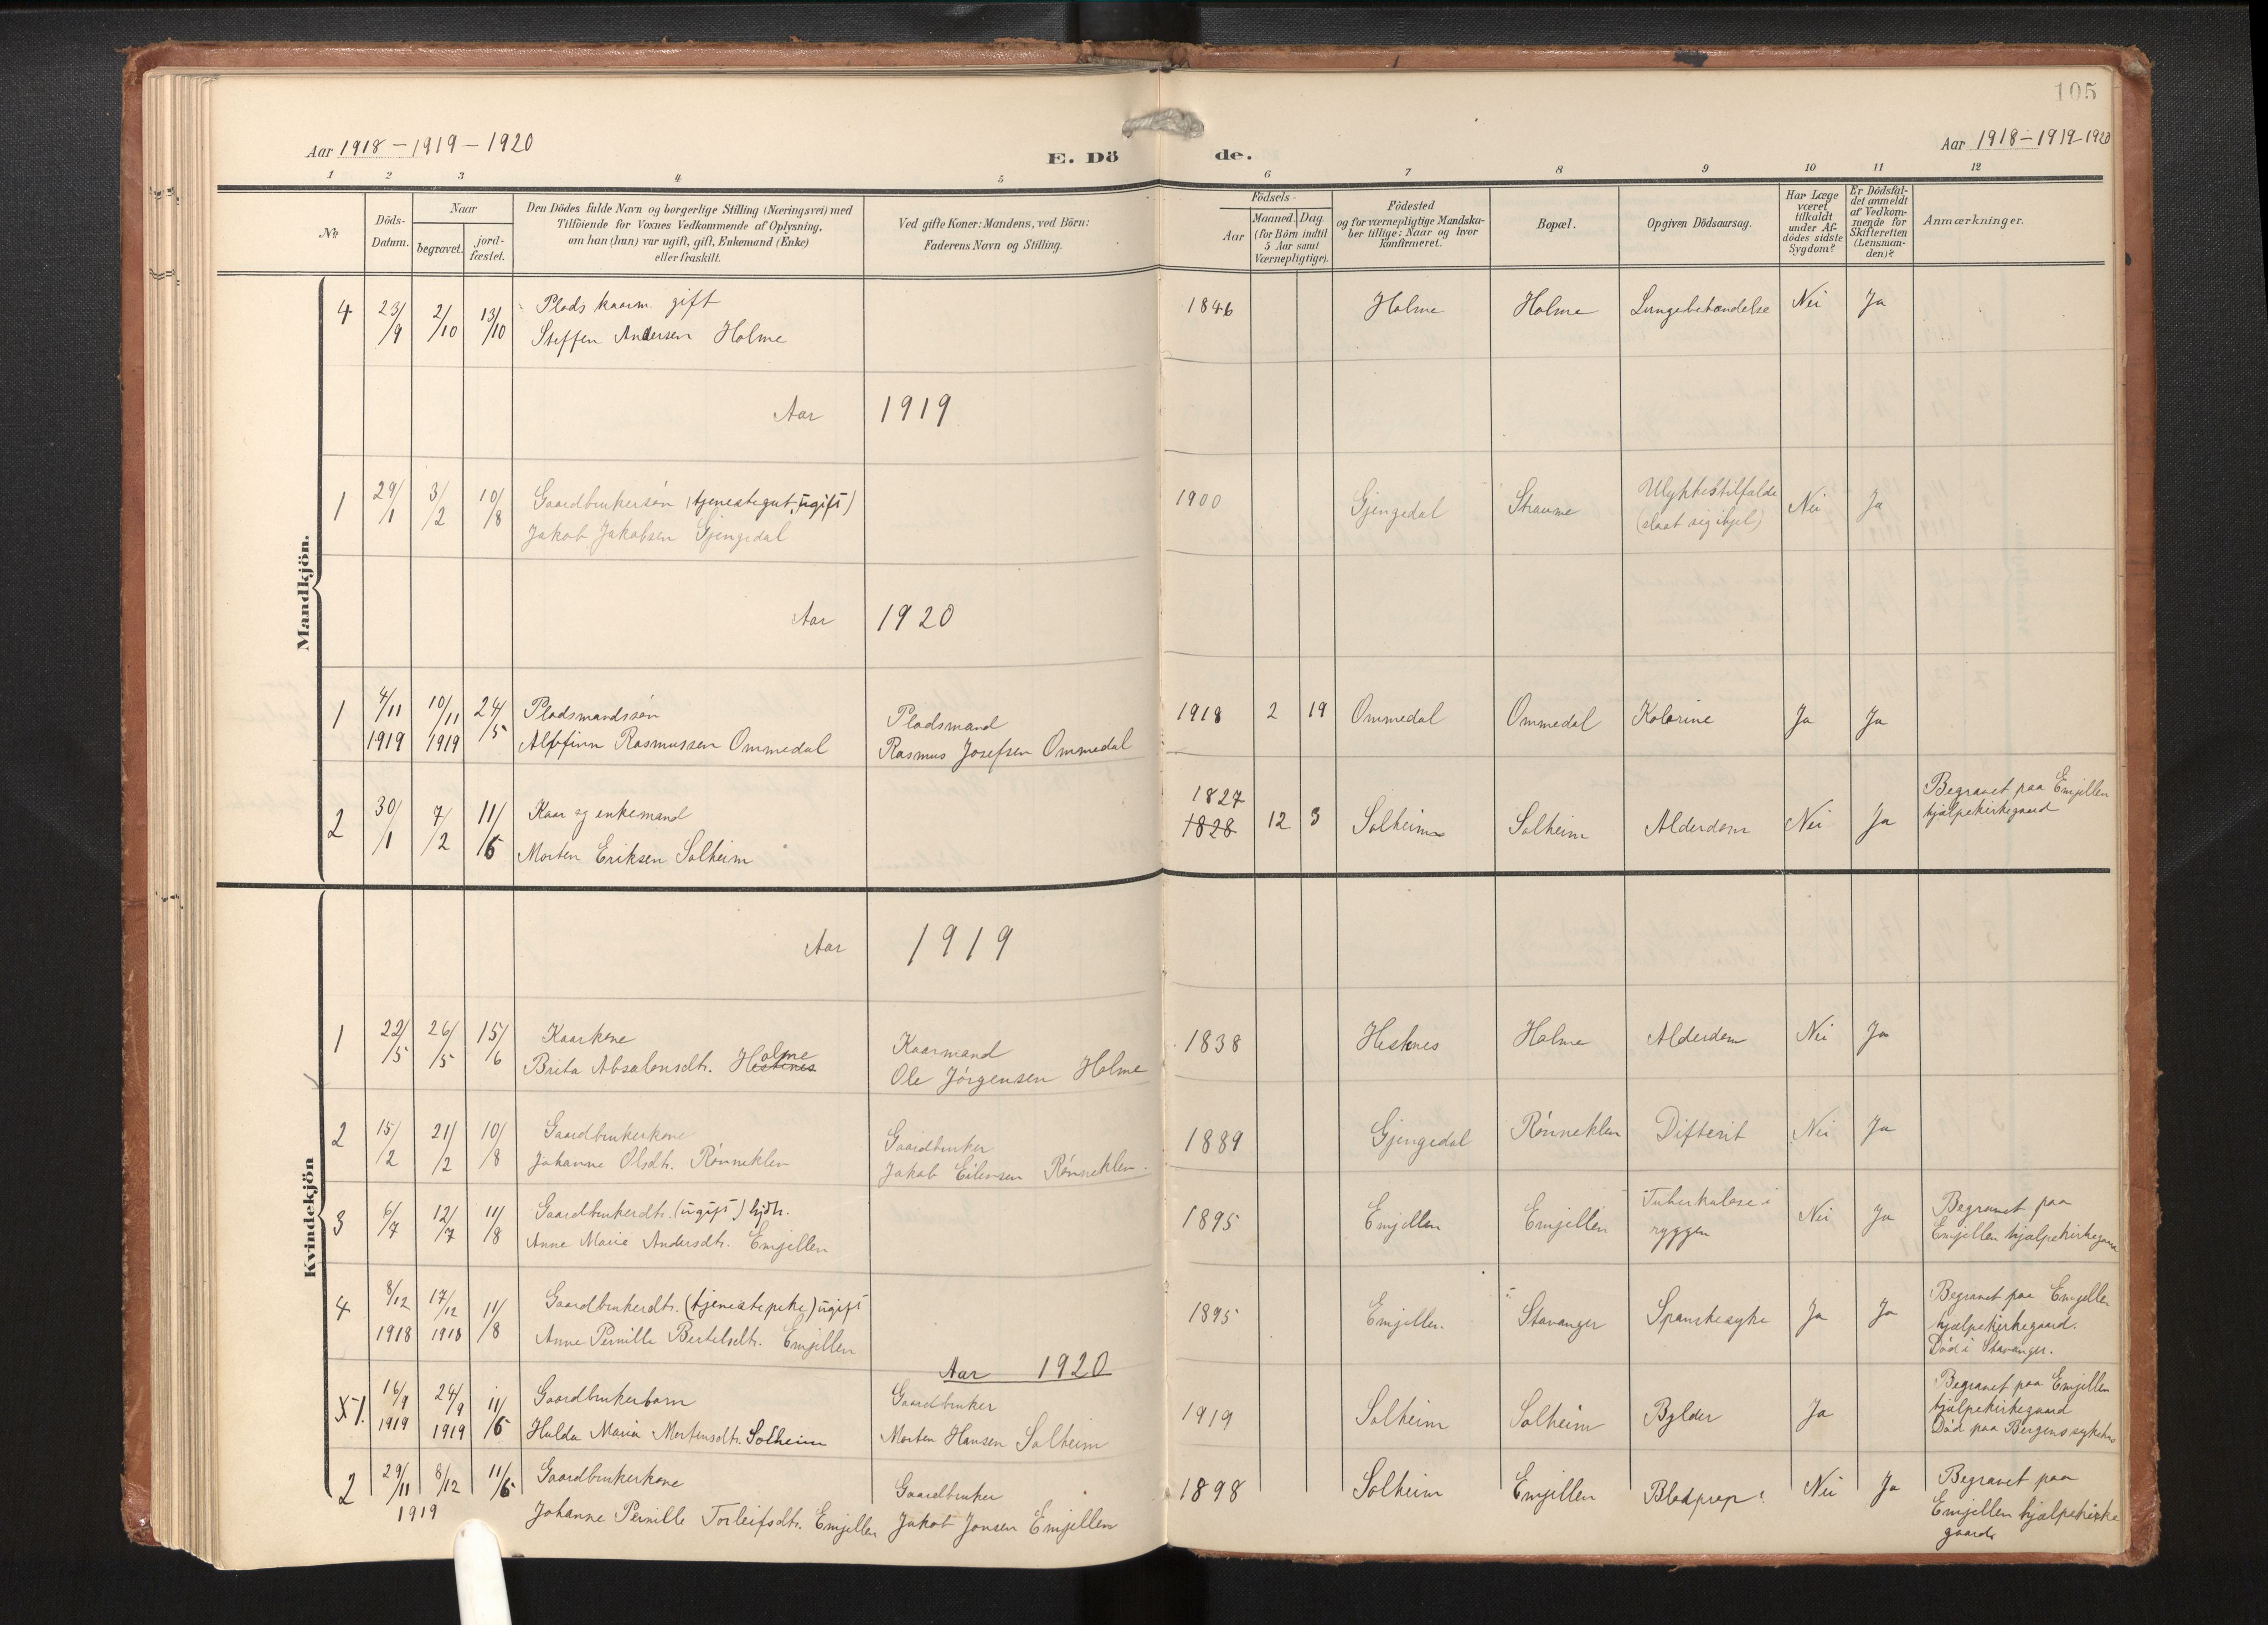 105
Aar 1918-1919-1920
E. Dö de.
Aar 1918-1919-1920
1 2 3 4 5 6 7 8 9 10 11 12
No
Döds-Datum.
Naar
begravet.
jord-fæstet.
Den Dödes fulde Navn og borgerlige Stilling (Næringsvei) med
Tilföiende for Voxnes Vedkommende af Oplysning,
om han (hun) var ugift, gift, Enkemand (Enke)
eller fraskilt.
Ved gifte Koner: Mandens, ved Börn:
Faderens Navn og Stilling.
Födsels-
Aar
Maaned. Dag.
(for Börn indtil
5 Aar samt
Værnepligtige).
Födested
og for værnepligtige Mandska-
ber tillige: Naar og hvor
konfirmeret.
Bopæl.
Opgiven Dödsaarsag.
Har Læge
været
tilkaldt
under Af-
dödes sidste
Sygdom?
Er Dödsfal-
det anmeldt
af Vedkom-
mende for
Skifteretten
(Lensman-
den)?
Anmærkninger.
Mandkjön.
4 23/9 2/10 13/10 Plads kaarm. gift
Steffen Andersen Holme
1846 Holme Holme Lungebetændelse Nei Ja
Aar 1919
1 29/1 3/2 10/8 Gaardbrukersøn (tjenestegut, ugift)
Jakob Jakobsen Gjengedal
1900 Gjengedal Straume Ulykkestilfælde
(slaat sig ihjel)
Nei Ja
Aar 1920
1 4/11 1919 10/11 1919 24/5 Pladsmandssøn
Alffinn Rasmussen Ommedal
Pladsmand
Rasmus Josefsen Ommedal
1918 2 19 Ommedal Ommedal Kolerine Ja Ja
2 30/1 7/2 11/6 Kaar og enkemand
Morten Eriksen Solheim
1827
1828 12 3 Solheim Solheim Alderdom Nei Ja
Begravet paa Emjellen
hjælpekirkegaard
Kvindekjön
Aar 1919
1 22/5 26/5 15/6 Kaarkone
Brita Absalonsdtr. Hestenes Holme
Kaarmand
Ole Jörgensen Holme
1838 Hestnes Holme Alderdom Nei Ja
2 15/2 21/2 10/8 Gaardbrukerkone
Johanne Olsdtr. Rönneklev
Gaardbruker
Jakob Eilevsen Rönneklev.
1889 Gjengedal Rönneklev Difterit Nei Ja
3 6/7 12/7 11/8 Gaardbrukerdtr. (ugift) hjdtr.
Anne Marie Andersdtr. Emjellen
1895 Emjellen Emjellen Tuberkulose i
ryggen
Nei Ja
Begravet paa
Emjellen hjælpekirkegaard
4 8/12 1918 17/12 1918 11/8 Gaardbrukerdtr. (tjenestepike) ugift
Anne Pernille Bertelsdtr. Emjellen
1895 Emjellen. Stavanger Spanskesyke Ja Ja
Begravet paa Emjellen
hjælpekirkegaard.
Död i Stavanger.
Aar 1920
1. 16/9 1919 24/9 1919 11/6 Gaardbrukerbarn
Hulda Maria Mortensdtr. Solheim
Gaardbruker
Morten Hansen Solheim
1919 Solheim Solheim Bylder Ja
Begravet paa Emjellen
hjälpekirkegaard
Död paa Bergens sykehus
2 29/11 8/12 1919 11/6 Gaardbrukerkone
Johanne Pernille Torleifsdtr. Emjellen
Gaardbruker
Jakob Jonsen Emjellen
1898 Solheim Emjellen Blodprop? Nei Ja
Begravet paa
Emjellen hjælpekirke
gaard